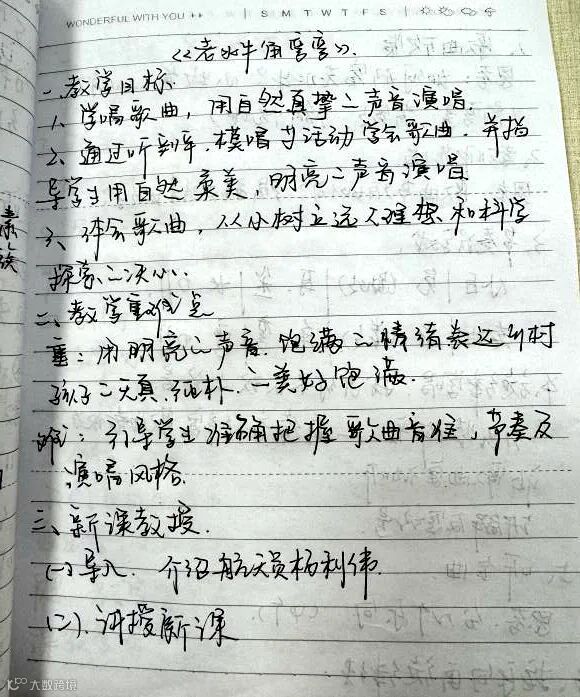 WONDERFUL WITH YOU ++ | S M T W T F S |
《老水牛角弯弯》.
一、教学目标
1、学唱歌曲，用自然真挚之声音演唱.
2、通过听、模唱 活动学会歌曲. 并指
导学生用自然 柔美，明亮之声音演唱
3、体会歌曲，从小树立远大理想和科学
探索之决心.
二、教学重难点
重：用明亮之声音. 饱满之情绪表达乡村
孩子之天真、纯朴. 之美好饱满.
难：引导学生准确把握歌曲音准，节奏及
演唱风格.
三、新课教授.
(一)导入. 介绍航天员杨利伟.
(二). 讲授新课
大数跨境